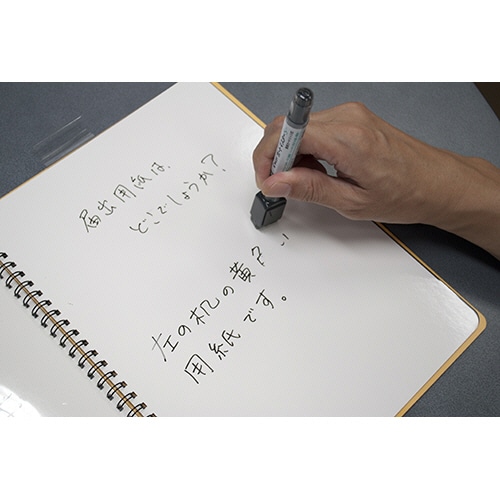 届出用紙は、
どこでしょうか?
左の机の黄
用紙です。